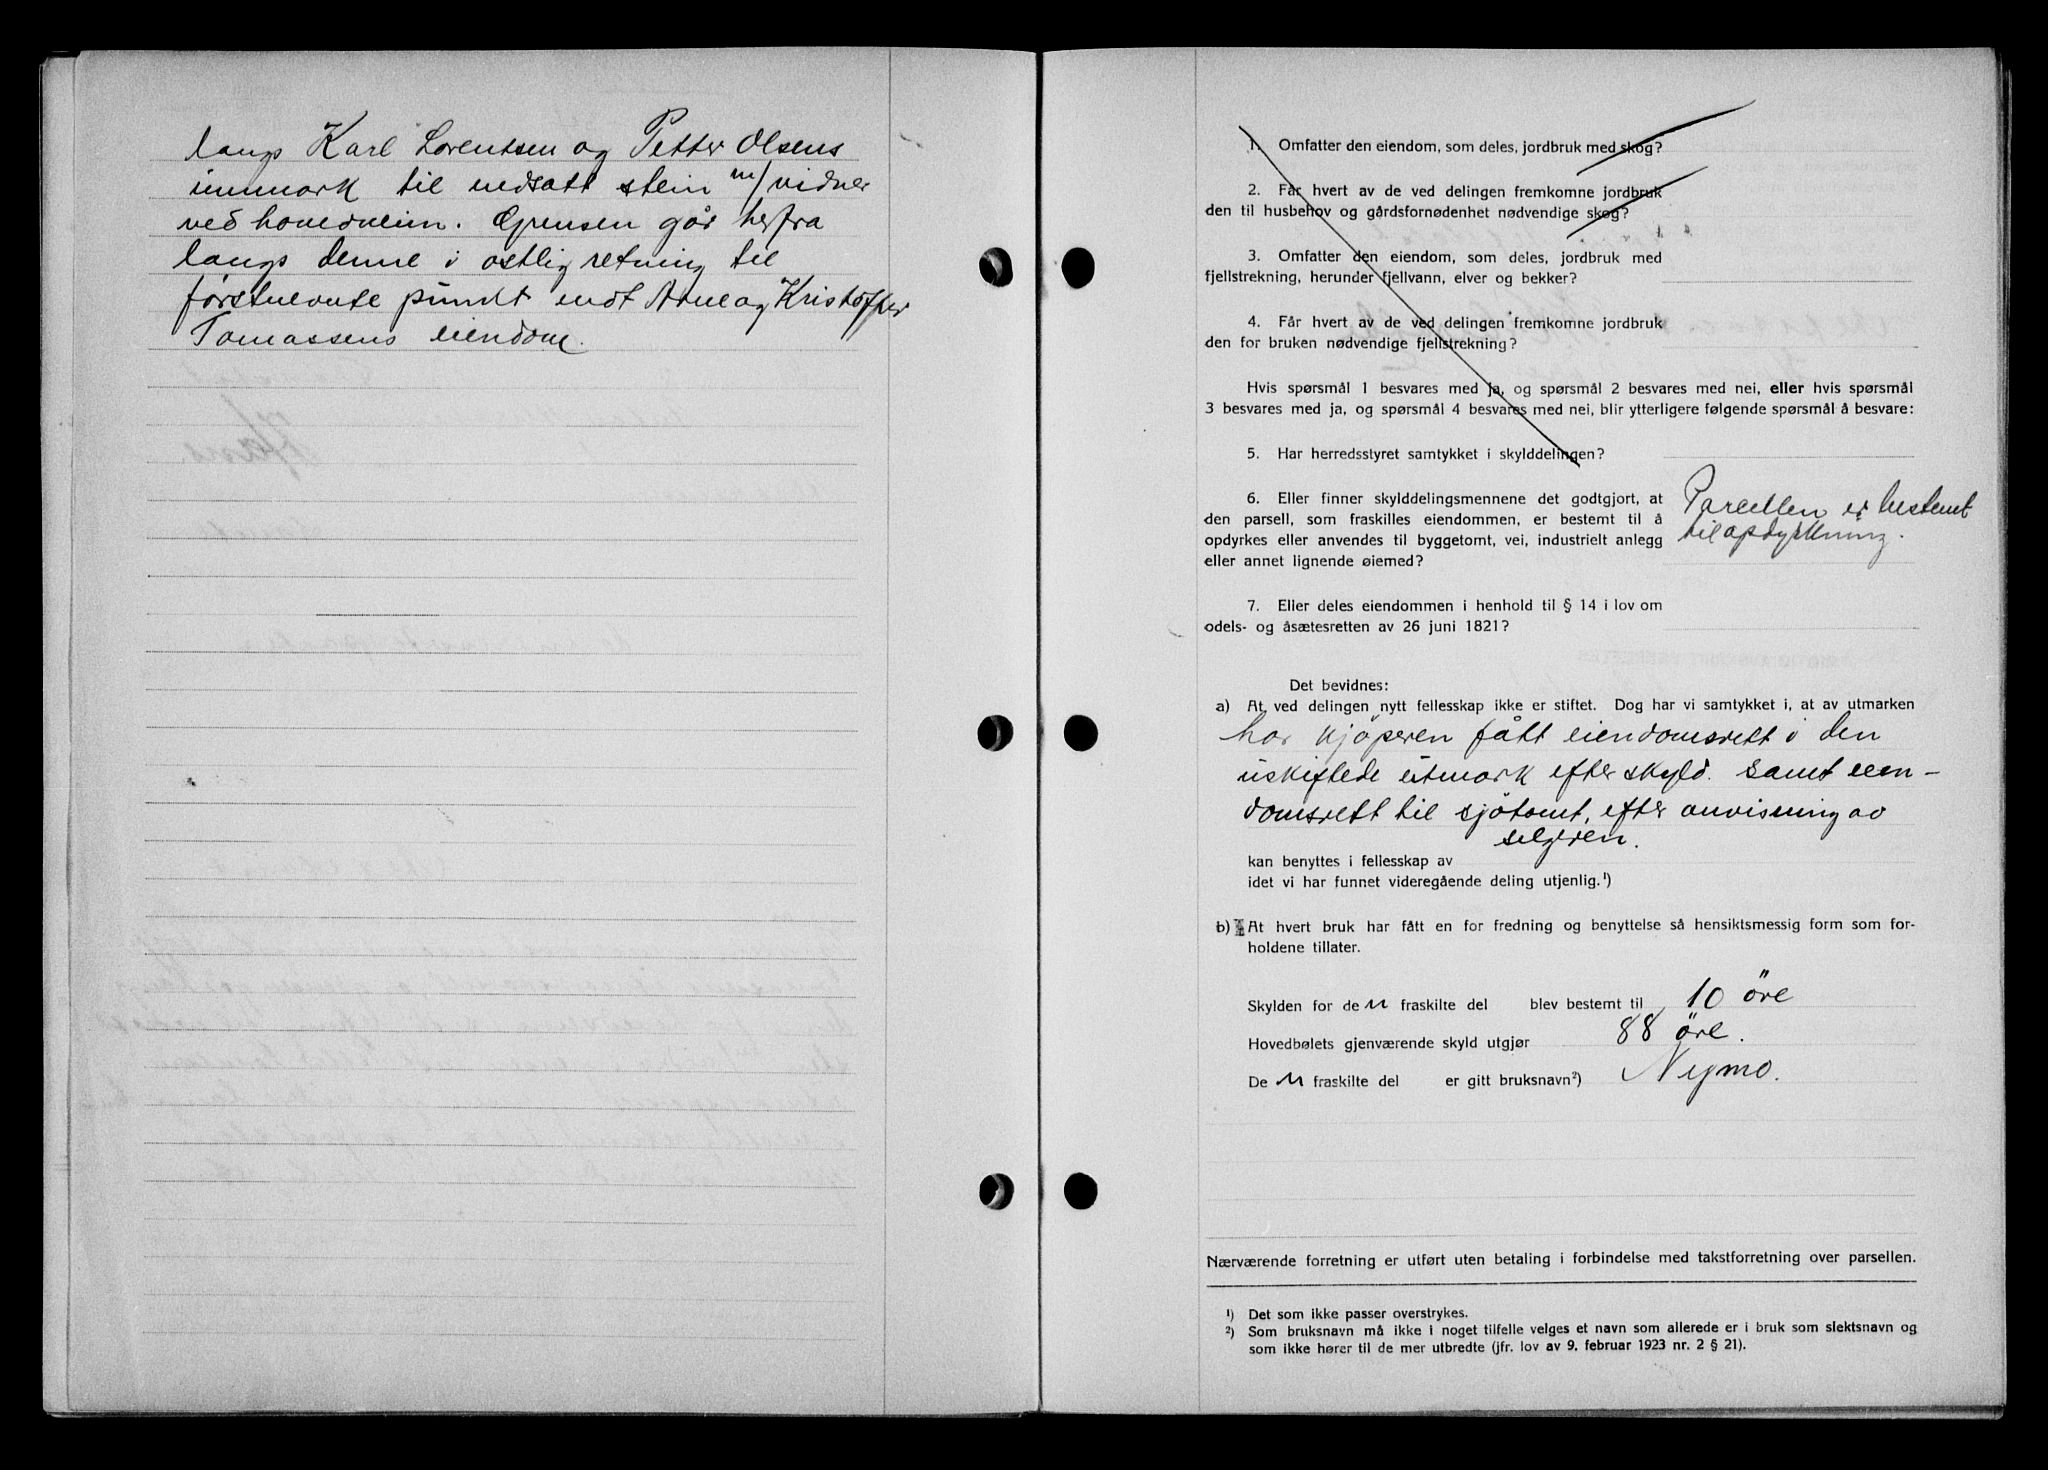 langs Karl Lorentsen og Petter Olsens
innmark til nedsatt stein m/ vidner
ved hovedveien. Grensen går herfra
langs denne i østlig retning til
førstnevnte pundt mot Arne og Kristoffer
Tomassens eiendom.
1. Omfatter den eiendom, som deles, jordbruk med skog?
2. Får hvert av de ved delingen fremkomne jordbruk
den til husbehov og gårdsfornødenhet nødvendige skog?
3. Omfatter den eiendom, som deles, jordbruk med
fjellstrekning, herunder fjellvann, elver og bekker?
4. Får hvert av de ved delingen fremkomne jordbruk
den for bruken nødvendige fjellstrekning?
Hvis spørsmål 1 besvares med ja, og spørsmål 2 besvares med nei, eller hvis spørsmål
3 besvares med ja, og spørsmål 4 besvares med nei, blir ytterligere følgende spørsmål å besvare:
5. Har herredsstyret samtykket i skylddelingen?
6. Eller finner skylddelingsmennene det godtgjort, at
den parsell, som fraskilles eiendommen, er bestemt til å
opdyrkes eller anvendes til byggetomt, vei, industrielt anlegg
eller annet lignende øiemed?
Parcellen er bestemt
til opdyrkning.
7. Eller deles eiendommen i henhold til § 14 i lov om
odels- og åsætesretten av 26 juni 1821?
Det bevidnes:
a) At ved delingen nytt fellesskap ikke er stiftet. Dog har vi samtykket i, at av utmarken
har kjöperen fått eiendomsrett i den
uskiftede utmark efter skyld. Samt eien-
domsrett til sjötomt, efter anvisning av
selgeren.
kan benyttes i fellesskap av
idet vi har funnet videregående deling utjenlig.¹)
b) At hvert bruk har fått en for fredning og benyttelse så hensiktsmessig form som for-
holdene tillater.
Skylden for den fraskilte del blev bestemt til 10 öre
Hovedbølets gjenværende skyld utgjør 88 öre.
Den fraskilte del er gitt bruksnavn²) Nymo.
Nærværende forretning er utført uten betaling i forbindelse med takstforretning over parsellen.
¹) Det som ikke passer overstrykes.
²) Som bruksnavn må ikke i noget tilfelle velges et navn som allerede er i bruk som slektsnavn og
som ikke hører til de mer utbredte (jfr. lov av 9. februar 1923 nr. 2 § 21).